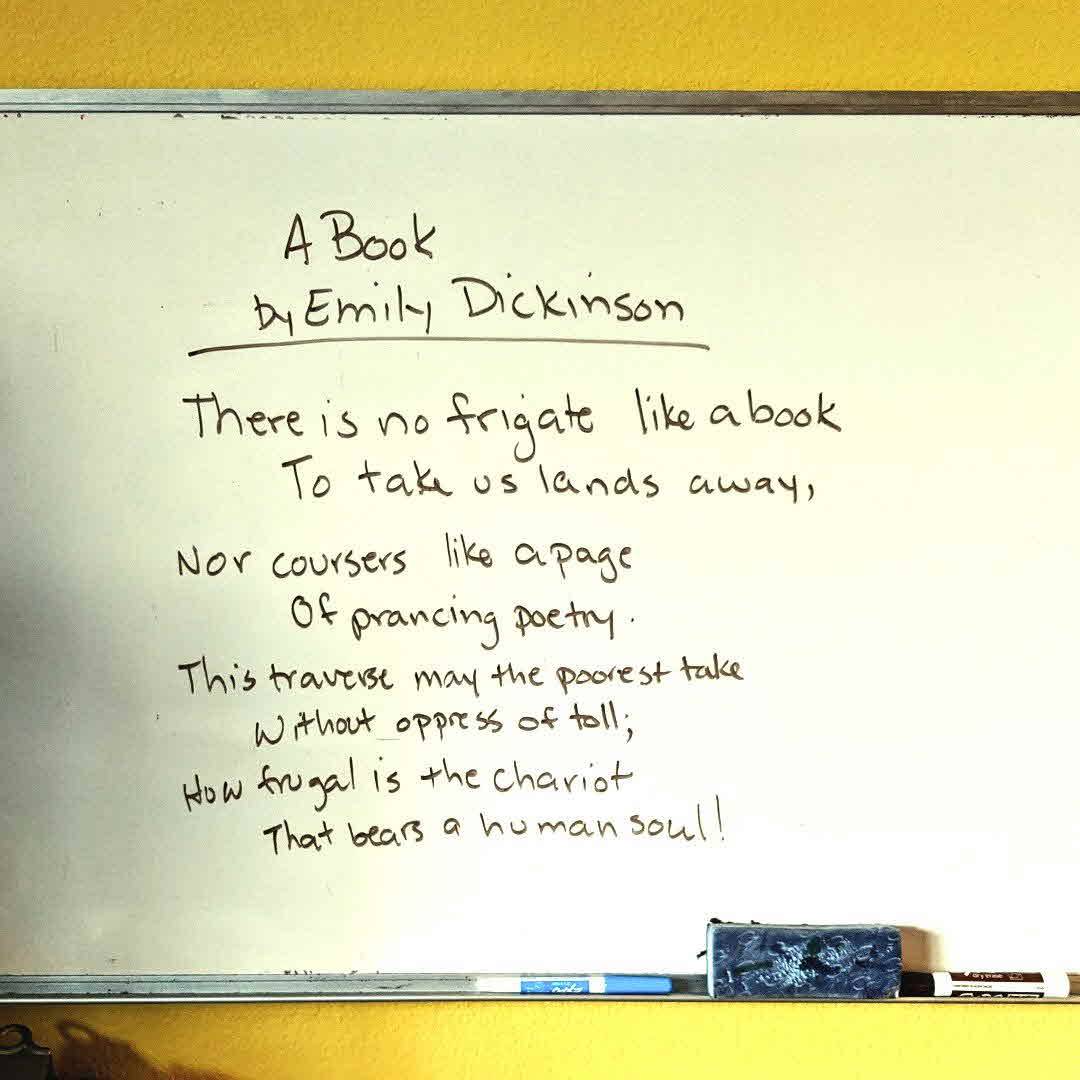 A Book
by Emily Dickinson
There is no frigate like a book
To take us lands away,
Nor coursers like a page
Of prancing poetry.
This traverse may the poorest take
Without oppress of toll;
How frugal is the chariot
That bears a human soul!